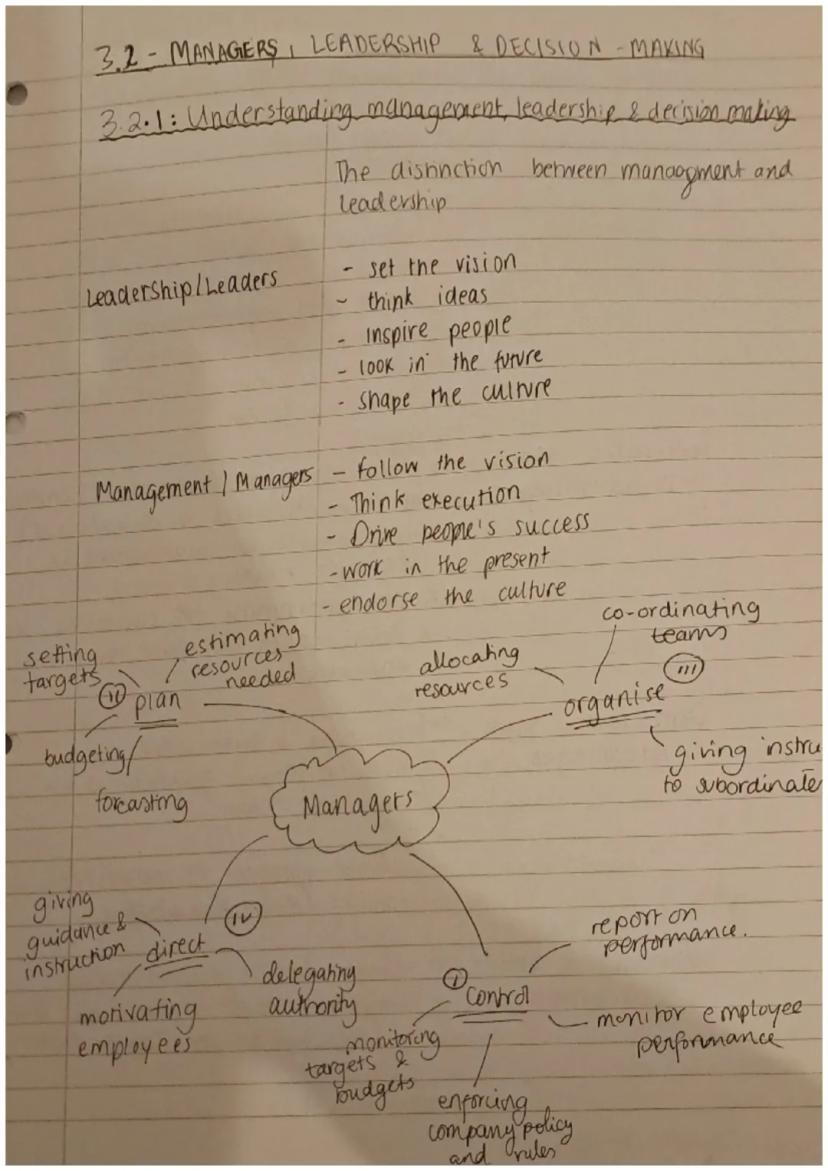 3.2 - MANAGERS, LEADERSHIP & DECISION - MAKING
3.2.1: Understanding management, leadership & decision making
The distinction between managment and
leadership
Leadership/Leaders
- set the vision
- think ideas
- inspire people
- look in the future
- shape the culture
Management / Managers
- follow the vision
- Think execution
- Drive people's success
- work in the present
- endorse the culture
setting
targets
estimating
resources
needed
(ii) plan
budgeting/
forcasting
co-ordinating
teams
allocating
resources
(iii)
organise
giving instru
to subordinate
Managers
giving
guidance &
instruction
(iv)
direct
motivating
employees
delegating
authority
report on
performance.
(i) control
monitor employee
performance
monitoring
targets &
budgets
enforcing
company policy
and rules